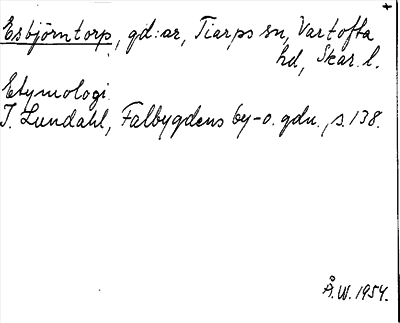 Esbjörntorp, gd:ar, Tiarps sn, Vartofta
hd, Skar. l.
Etymologi.
I. Lundahl, Falbygdens by-o. gdn., s. 138.
Å.W. 1954.